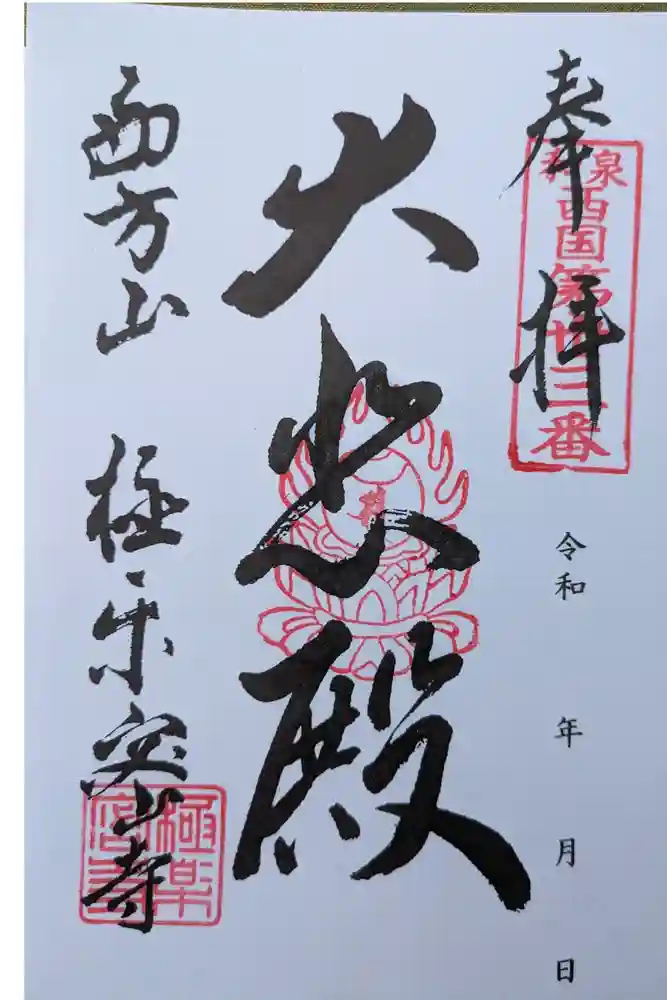 奉拝
和泉
西国第廿三番
大悲殿
西方山 極楽密寺
極楽
密寺
令和 年 月 日